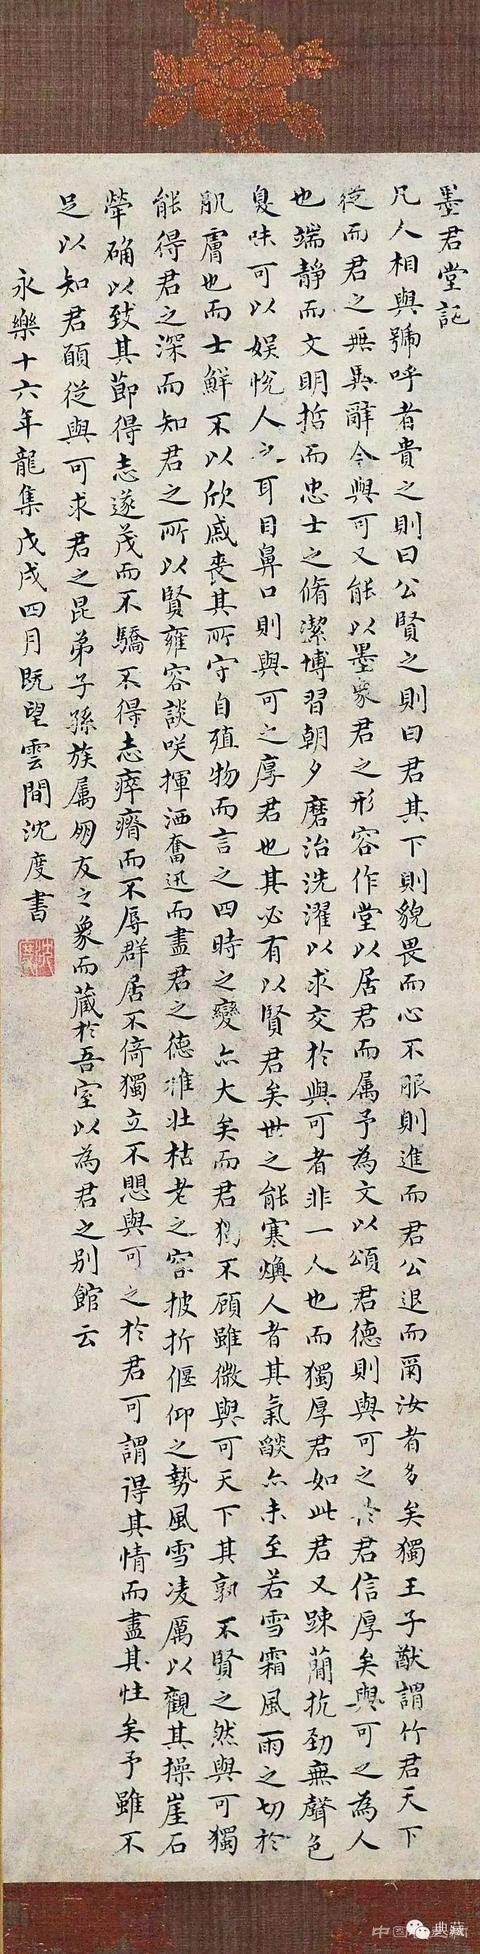 墨君堂記
凡人相與號呼者貴之則曰公賢之則曰君其下則貌畏而心不服則進而君公退而爾汝者多矣獨王子猷謂竹君天下
從而君之無異辭今與可又能以墨象君之形容作堂以居君而属予為文以頌君德則與可之於君信厚矣與可之為人
也端靜而文明哲而忠士之脩潔博習朝夕磨治洗濯以求交於與可者非一人也而獨厚君如此君又踈蕳抗勁無聲色
臭味可以娱悅人之耳目鼻口則與可之厚君也其必有以賢君矣世之能寒燠人者其氣燄亦未至若雪霜風雨之切於
肌膚也而士鮮不以欣戚喪其所守自殖物而言之四時之變亦大矣而君獨不顧雖微與可天下其孰不賢之然與可獨
能得君之深而知君之所以賢雍容談咲揮洒奮迅而盡君之德稚壯枯老之容披折偃仰之勢風雪凌厲以觀其操崖石
犖确以致其節得志遂茂而不驕不得志瘁瘠而不辱群居不倚獨立不懼與可之於君可謂得其情而盡其性矣予雖不
足以知君願從與可求君之昆弟子孫族属朋友之象而藏於吾室以為君之别館云
永樂十六年龍集戊戌四月既望雲間沈度書
典藏